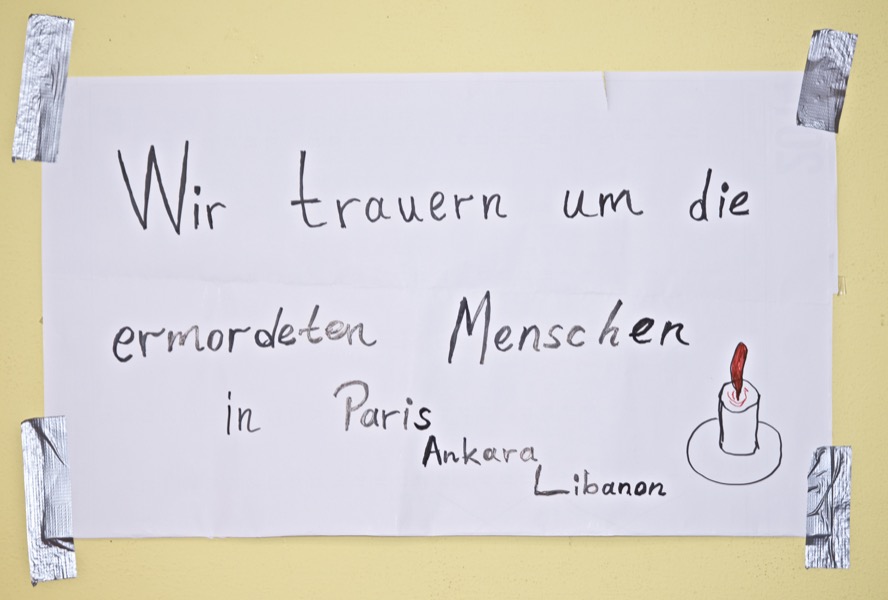 Wir trauern um die
ermordeten Menschen
in Paris
Ankara
Libanon